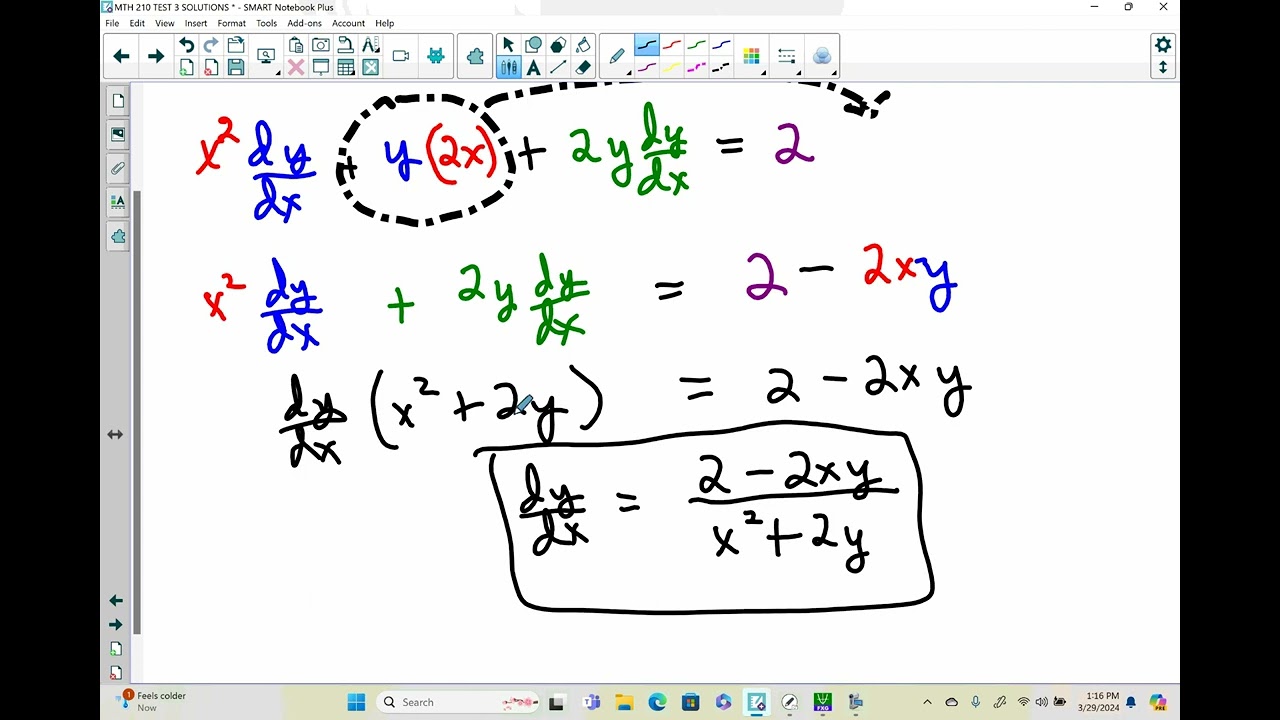 MTH 210 TEST 3 SOLUTIONS * - SMART Notebook Plus
File Edit View Insert Format Tools Add-ons Account Help
x² dy/dx + y(2x) + 2y dy/dx = 2
x² dy/dx + 2y dy/dx = 2 - 2xy
dy/dx (x² + 2y) = 2 - 2xy
dy/dx = (2 - 2xy)/(x² + 2y)
1 Feels colder
Now
Search
FXG
1:16 PM
3/29/2024
PRE